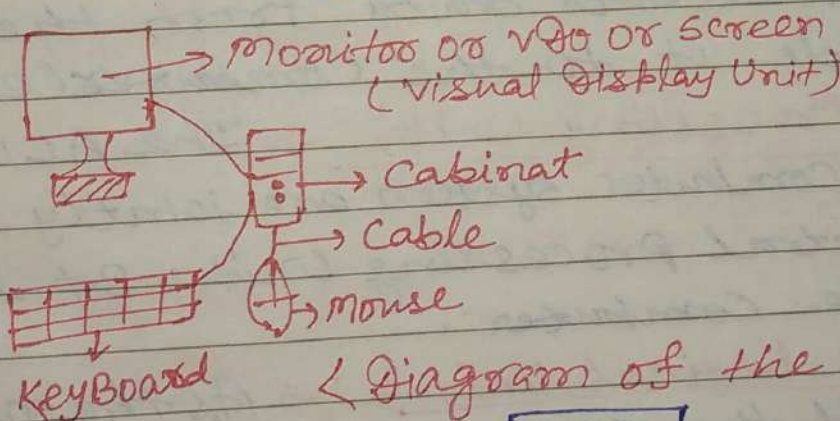 Monitor or VDU or Screen
(Visual Display Unit)
Cabinat
Cable
Mouse
KeyBoard
< Diagram of the